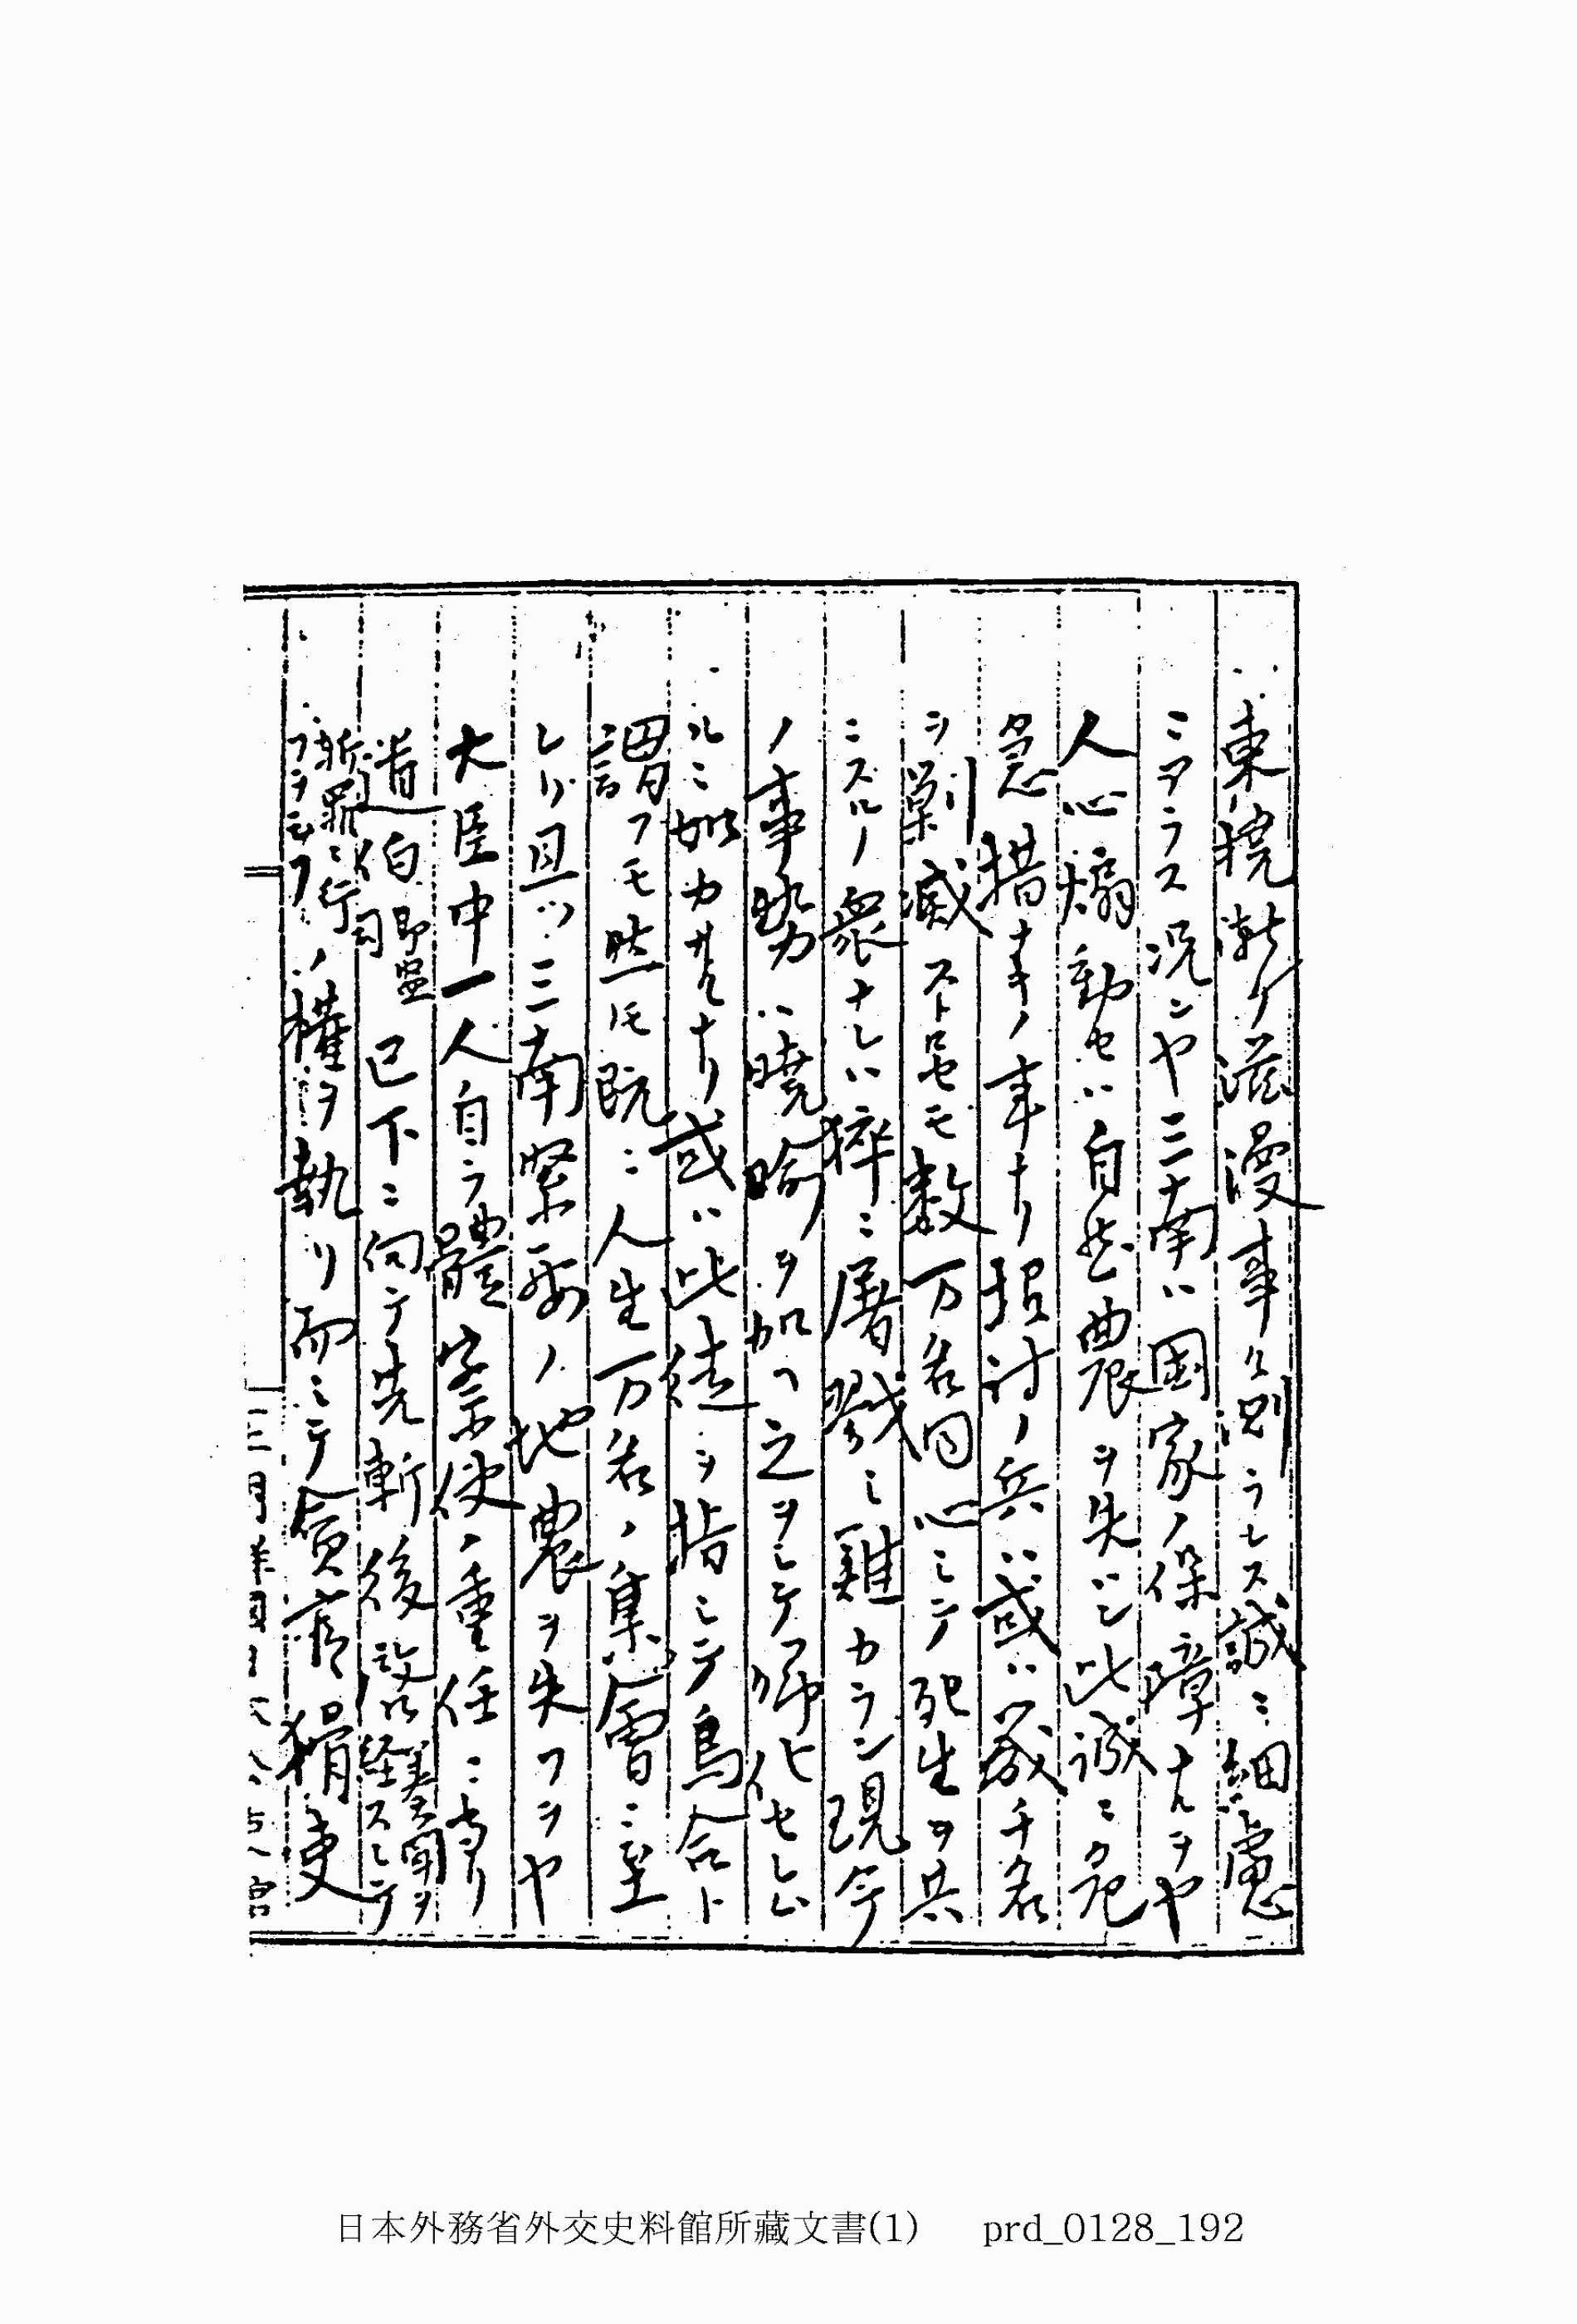 東撓漸ク滋漫事ケ測ラレス誠ニ細慮
ニアラス況ンヤ三南ハ国家ノ保障ナルヲヤ
人心煽動セハ自然農ヲ失ハン此誠ニ危
急措ナキノ事ナリ招討ノ兵ハ或ハ幾千名
ヲ剿滅スト曰セモ数万名同心シテ死生ヲ共
ニスルノ衆ナレハ猝ニ屠戮シ難カラン現今
ノ事勢ハ暁喩ヲ加ヘ之ヲシテ帰化セシム
ルニ如カサルナリ或ハ此徒ヲ指シテ烏合ト
謂フモ然トモ既ニ人生万名ノ集會ニ至
レリ且ツ三南緊要ノ地農ヲ失フヲヤ
大臣中一人自ラ體察使ノ重任ニ当リ
道伯即監司已下ニ向テ先斬後啓奏聞ヲ経スシテ
斬罪ニ行フヲ云フノ権ヲ執リ而シテ貪官猾吏